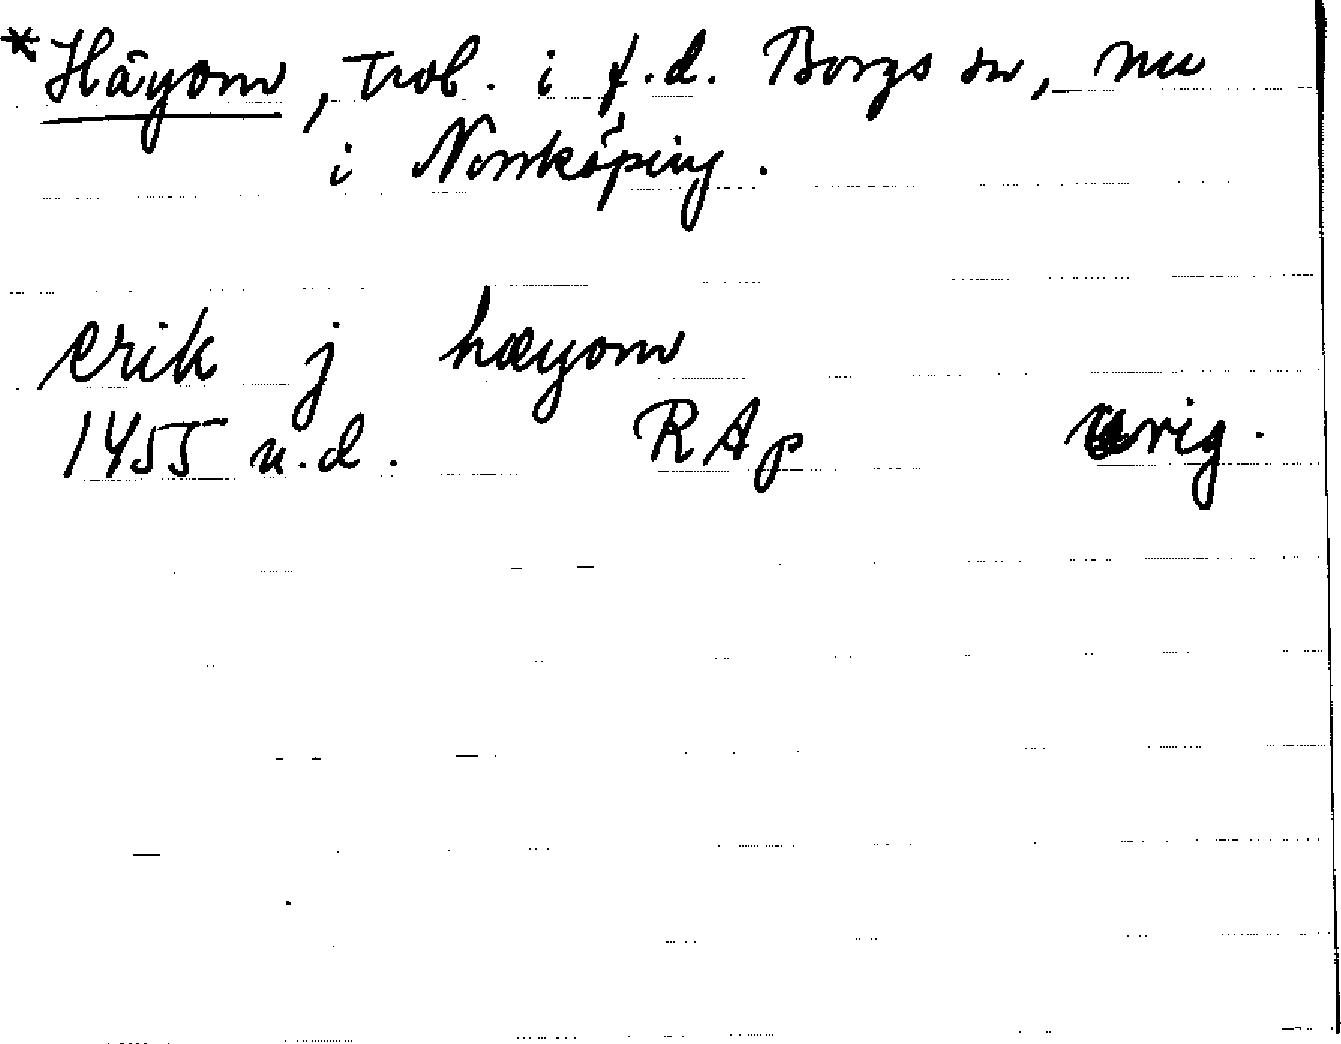 *Häyom, trol. i f.d. Borgs sn, nu
i Norrköping.
erik j hæyom
1455 u.d. RAp orig.